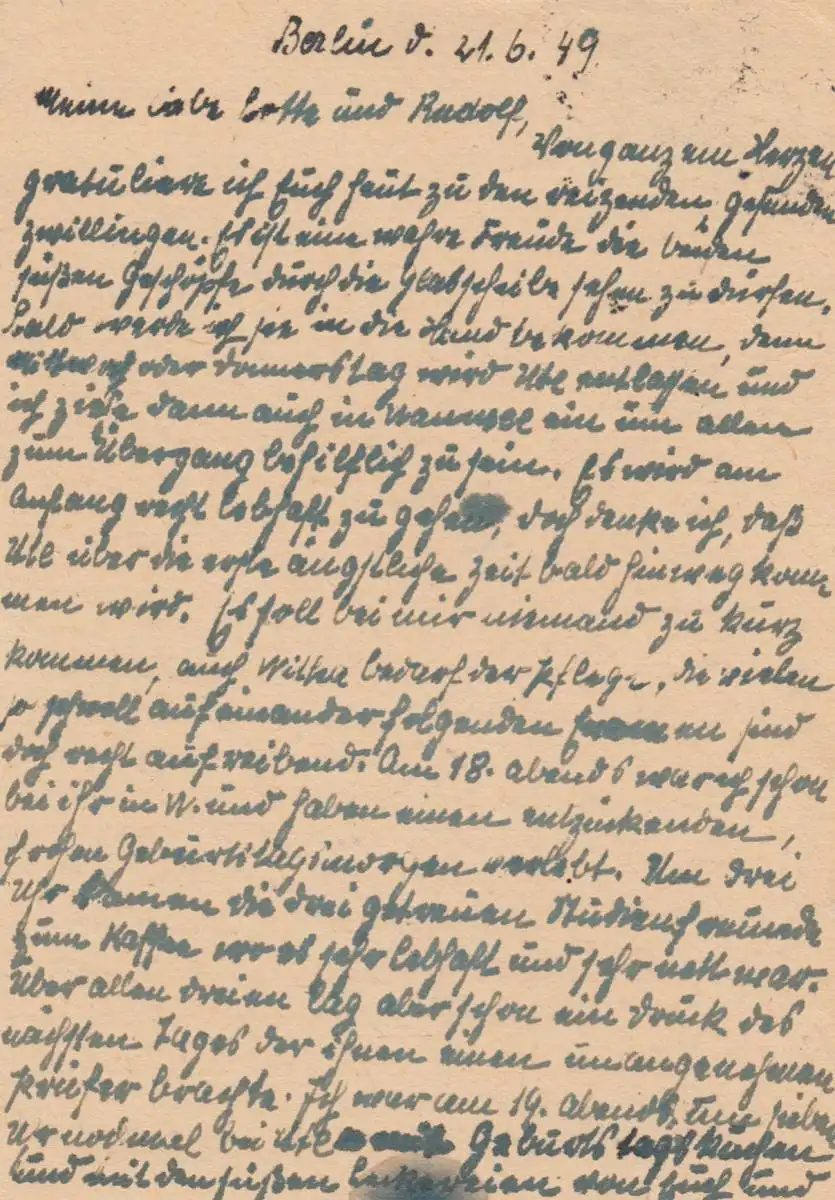 Berlin d. 21. 6. 49
Meine liebe Lotte und Rudolf,
Von ganzem Herzen
gratuliere ich Euch heut zu den reizenden, gesunden
Zwillingen. Es ist eine wahre Freude die beiden
süßen Geschöpfe durch die Glasscheibe sehen zu dürfen.
Bald werde ich sie in die Hand bekommen, denn
Mittwoch oder Donnerstag wird entlassen und
ich ziehe dann auch in Wannsee ein um allen
zum Übergang behilflich zu sein. Es wird am
Anfang recht lebhaft zu gehen, doch denke ich, daß
über die erste ängstliche Zeit bald hinweg kom-
men wird. Es soll bei mir niemand zu kurz
kommen, auch bedarf der Pflege, die vielen
so schnell aufeinander folgenden sind
doch recht aufreibend. Am 18. abends war ich schon
bei ihr in W. und haben einen entzückenden,
frohen Geburtstagsmorgen verlebt. Um drei
Uhr kamen die drei getreuen Studienfreunde
zum Kaffee wo es sehr lebhaft und sehr nett war.
Über allen dreien lag aber schon ein Druck des
nächsten Tages der ihnen einen unangenehmen
Prüfer brachte. Ich war am 19. abends um sieben
Ur nochmal bei Geburtstagskuchen
und mit den süßen Leckereien von Euch und